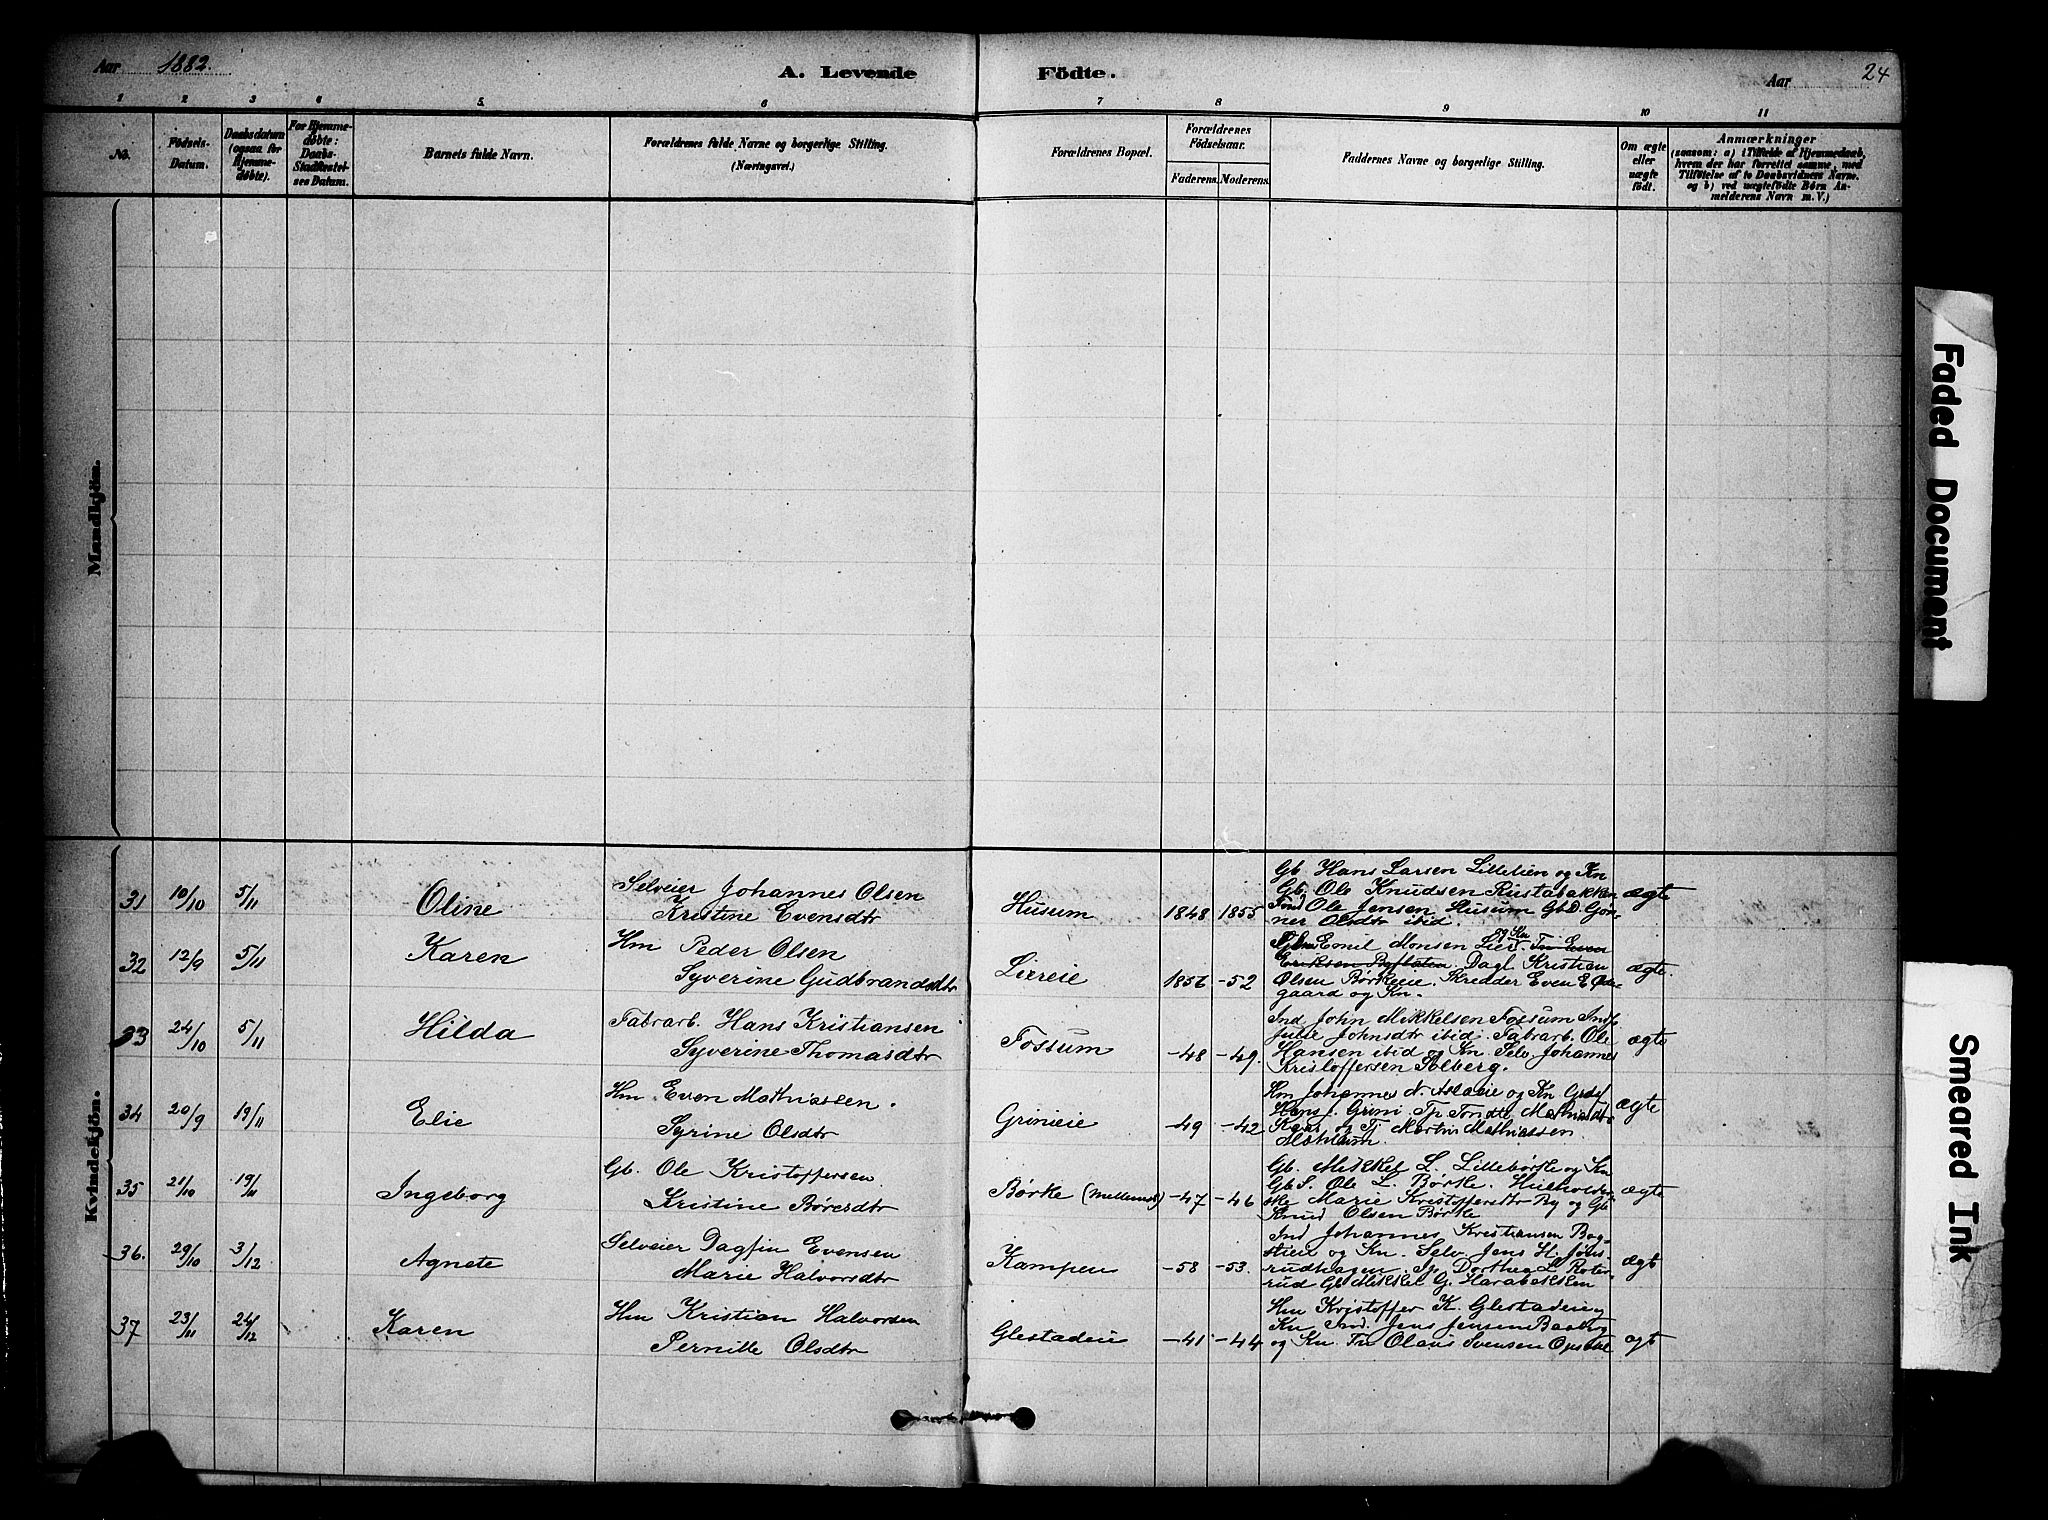 Aar 1882.
A. Levende Födte.
Aar
24
1 2 3 4 5. 6 7 8 9 10 11
No.
Födsels-Datum.
Daabsdatum (ogsaa for Hjemmedöbte).
For Hjemmedöbte: Daabs-Stadfæstelses Datum.
Barnets fulde Navn.
Forældrenes fulde Navne og borgerlige Stilling. (Næringsvei.)
Forældrenes Bopæl.
Forældrenes Födselsaar.
Faderens. Moderens.
Faddernes Navne og borgerlige Stilling.
Om ægte eller uægte födt.
Anmærkninger
(saasom: a) i Tilfælde af Hjemmedaab, hvem der har forrettet samme, med Tilföielse af to Daabsvidners Navne. og b) ved uægtefödte Börn Anmelderens Navn m. V.)
Mandkjön.
Kvindekjön.
31 10/10 5/11 Oline
Selveier Johannes Olsen
Kristine Evensdtr
Husum 1848 1855
Gb. Hans Larsen Lillelien og Kn
Gb. Ole Knudsen Rustabakken
Ole Jensen Husum Gb.D. Gøn-
ner Olsdtr ibid.
ægte
32 12/9 5/11 Karen
Hm Peder Olsen
Syverine Gudbrandsdtr
Liereie 1856 -52
Emil Monsen Lier og Kn
Dagl Kristian
Olsen Børkeeie. Skredder Even E. Øde-
gaard og Kn.
ægte.
33 24/10 5/11 Hilda
Fabrarb. Hans Kristiansen
Syverine Thomasdtr
Fossum -48 -49.
Ind. John Mikkelsen Fossum Ind.
Julie Johnsdtr ibid. Fabrarb. Ole
Hansen ibid og Kn. Selv. Johannes
Kristoffersen Solberg.
ægte
34 20/9 19/11 Elie
Hm. Even Mathiassen.
Syrine Olsdtr
Grinieie -49 -42
Hm Johannes og Kn
Hans J. Grini.
og Martin Mathiassen
ægte
35 21/10 19/11 Ingeborg
Gb. Ole Kristoffersen
Kristine Børresdtr
Børke (Mellems) -47 -46
Gb. Mikkel L. Lillebørke og Kn
Gb.S. Ole L. Børke. Husholder-
ske Marie Kristoffersdtr By og Gb
Knud Olsen Børke
ægte
36. 29/10 3/12 Agnete
Selveier Dagfin Evensen
Marie Halvorsdtr
Kampen -58 -53.
Ind Johannes Kristiansen Bag-
stien og Kn. Selv. Jens H. Jøns-
rudhagen. Pg. Dorthea L. Roter-
rud Gb. Mikkel G. Harabakken
ægt
37 23/11 24/12 Karen
Hm Kristian Halvorsen
Pernille Olsdtr
Glestadeie -41 -44
Hm Kristoffer K. Glestadeie og
Kn Ind. Jens Jensen Baasly
og Kn. Olaus Svensen Opsahl
ægt
Faded Document
Smeared Ink